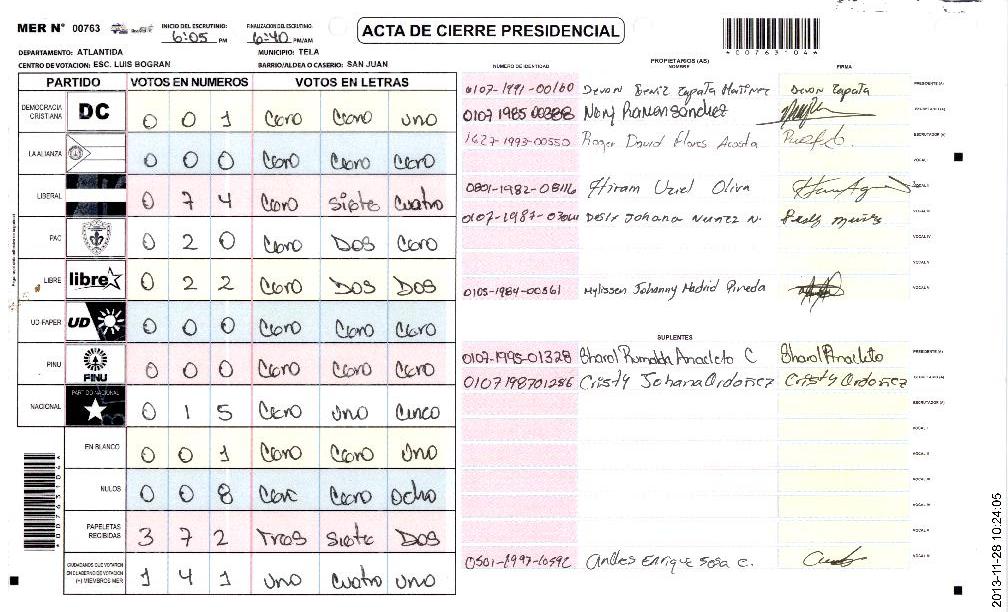 MER N° 00763 INICIO DEL ESCRUTINIO: 6:05 PM FINALIZACION DEL ESCRUTINIO: 6:40 PM/AM
ACTA DE CIERRE PRESIDENCIAL
*00763104*
DEPARTAMENTO: ATLANTIDA MUNICIPIO: TELA
CENTRO DE VOTACION: ESC. LUIS BOGRAN BARRIO/ALDEA O CASERIO: SAN JUAN
PARTIDO VOTOS EN NUMEROS VOTOS EN LETRAS
DEMOCRACIA CRISTIANA DC 0 0 1 Cero Cero uno
LA ALIANZA 0 0 0 Cero Cero Cero
LIBERAL 0 7 4 Cero Siete Cuatro
PAC 0 2 0 Cero Dos Cero
LIBRE libre 0 2 2 Cero Dos Dos
UD-FAPER UD 0 0 0 Cero Cero Cero
PINU PINU 0 0 0 Cero Cero Cero
NACIONAL PARTIDO NACIONAL 0 1 5 Cero uno Cinco
EN BLANCO 0 0 1 Cero Cero Uno
NULOS 0 0 8 Cero Cero Ocho
PAPELETAS RECIBIDAS 3 7 2 Tres Siete Dos
CIUDADANOS QUE VOTARON EN CUADERNO DE VOTACION (+) MIEMBROS MER 1 4 1 uno Cuatro uno
*00763104*
PROPIETARIOS (AS)
NUMERO DE IDENTIDAD NOMBRE FIRMA
0107-1991-00160 Devon Zapata Martinez Devon Zapata PRESIDENTE (A)
0107 1985 00388 Sanchez SECRETARIO (A)
1627-1993-00550 Roger David Flores Acosta ESCRUTADOR (A)
VOCAL I
Hiram Uziel Oliva VOCAL II
Johana Nuñez N. VOCAL III
VOCAL IV
VOCAL V
0105-1984-00561 Johanny Madrid Pineda VOCAL VI
SUPLENTES
0107-1995-01328 Sharol Romalda Anacleto C Sharol Anacleto PRESIDENTE (A)
0107198701286 Cristy Johana Ordoñez Cristy Ordoñez SECRETARIO (A)
ESCRUTADOR (A)
VOCAL I
VOCAL II
VOCAL III
VOCAL IV
VOCAL V
Andres Enrique Sosa C. VOCAL VI
2013-11-28 10:24:05